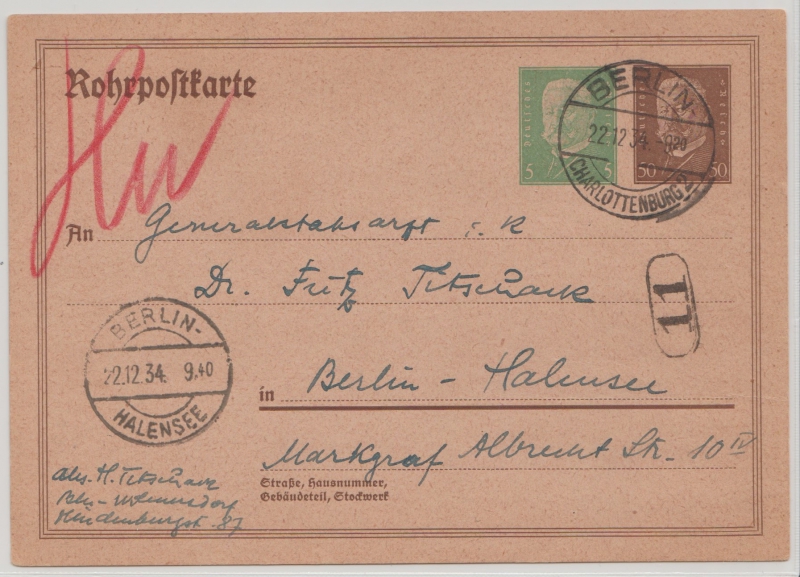 Rohrpostkarte
Hu
Deutsches
5 5
50 50
BERLIN-
22.12.34. -9 20
CHARLOTTENBURG 2
An Generalstabsarzt i. R
Dr. Fritz Titschack
11
BERLIN-
22.12.34. 9.40
HALENSEE
in Berlin - Halensee
Markgraf Albrecht Str. 10 IV
Straße, Hausnummer,
Gebäudeteil, Stockwerk
Abs. H. Titschack
Bln - Wilmersdorf
Hindenburgst. 87